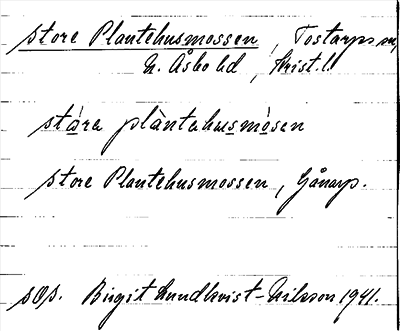 store Plantehusmossen, Tostarps sn,
N. Åsbo hd, Krist. l.
stára plàntahusmòsen
store Plantehusmossen, Gånarp.
sOs. Birgit Lundkvist-Nilsson 1941.